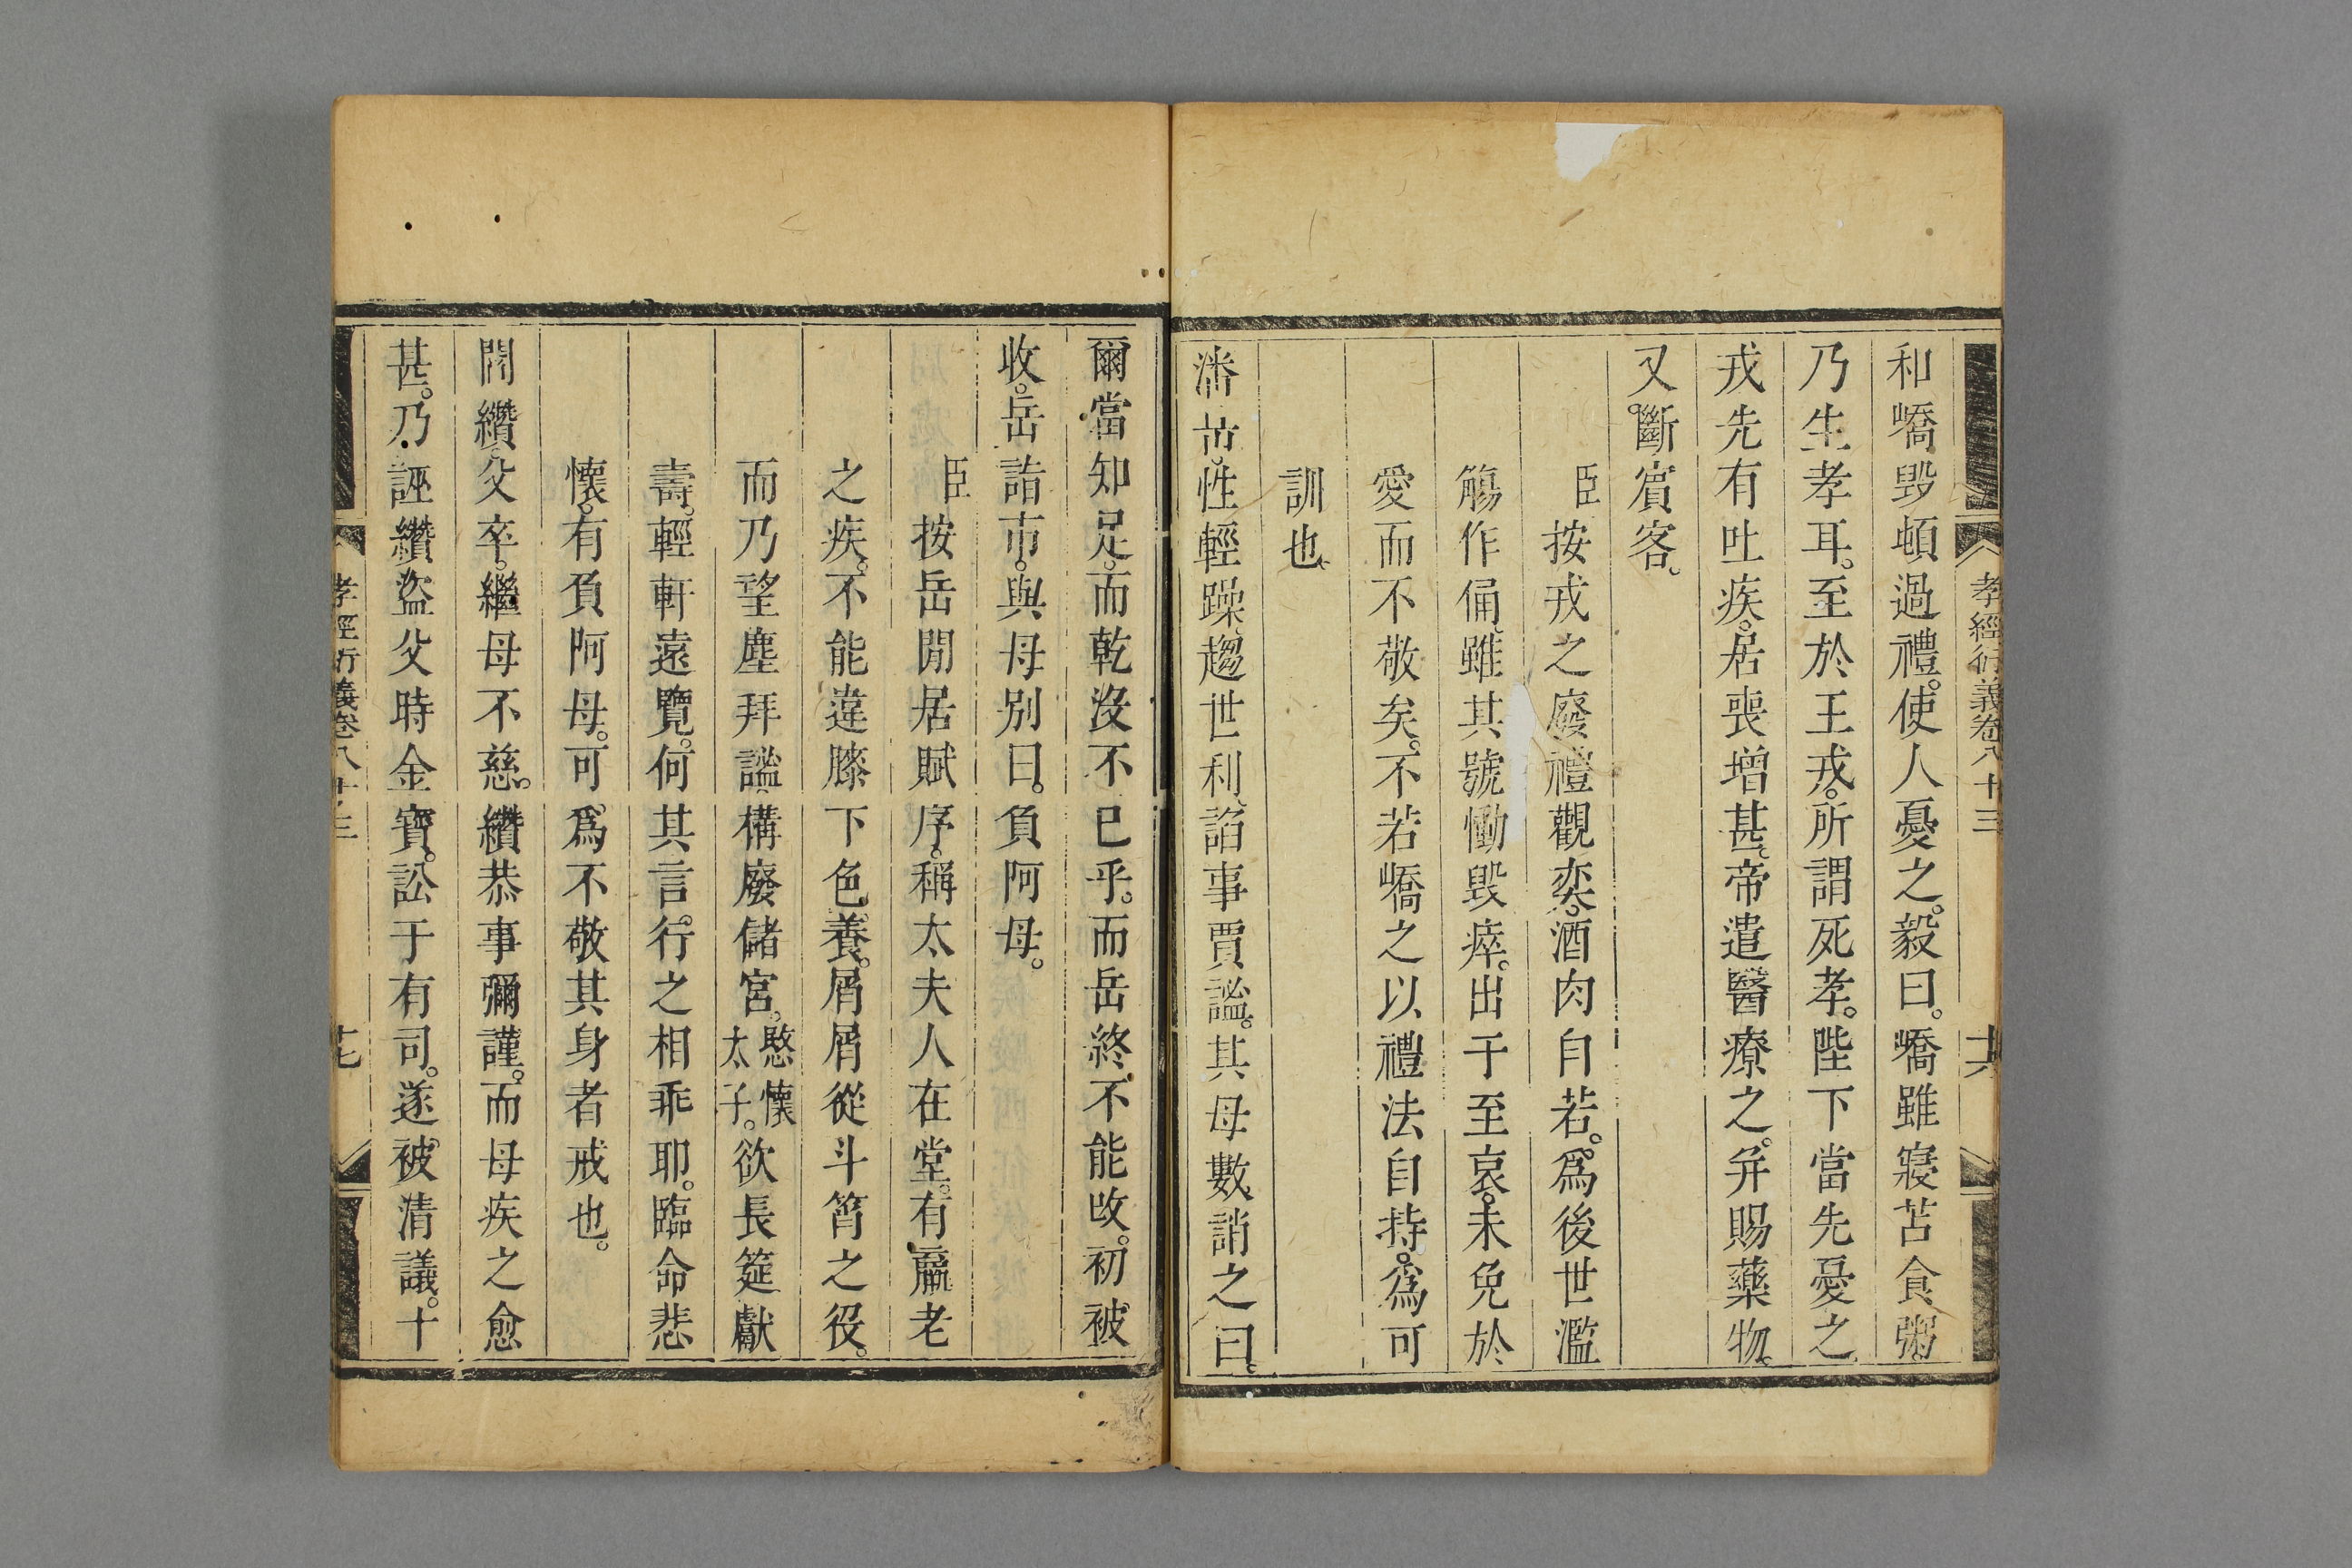 孝經衍義卷八十三
和嶠毁頓過禮。使人憂之。毅曰。嶠雖寢苫食粥。
乃生孝耳。至於王戎。所謂死孝。陛下當先憂之。
戎先有吐疾。居喪增甚。帝遣醫療之。并賜藥物。
又斷賓客。
臣按戎之廢禮觀奕。酒肉自若。爲後世濫
觴作俑。雖其號慟毀瘁。出于至哀。未免於
愛而不敬矣。不若嶠之以禮法自持。爲可
訓也。
潘岳性輕躁。趨世利。諂事賈謐。其母數誚之曰。
爾當知足。而乾沒不已乎。而岳終不能改。初被
收。岳詣市。與母別曰。負阿母。
臣按岳閒居賦序。稱太夫人在堂。有羸老
之疾。不能違膝下色養。屑屑從斗筲之役。
而乃望塵拜謐。構廢儲宮。愍懷太子。欲長筵獻
壽。輕軒遠覽。何其言。行之相乖耶。臨命悲
懷。有負阿母。可爲不敬其身者戒也。
閻纘父卒。繼母不慈。纘恭事彌謹。而母疾之愈
甚。乃誣纘盜父時金寶。訟于有司。遂被清議。十
孝經衍義卷八十三
十七